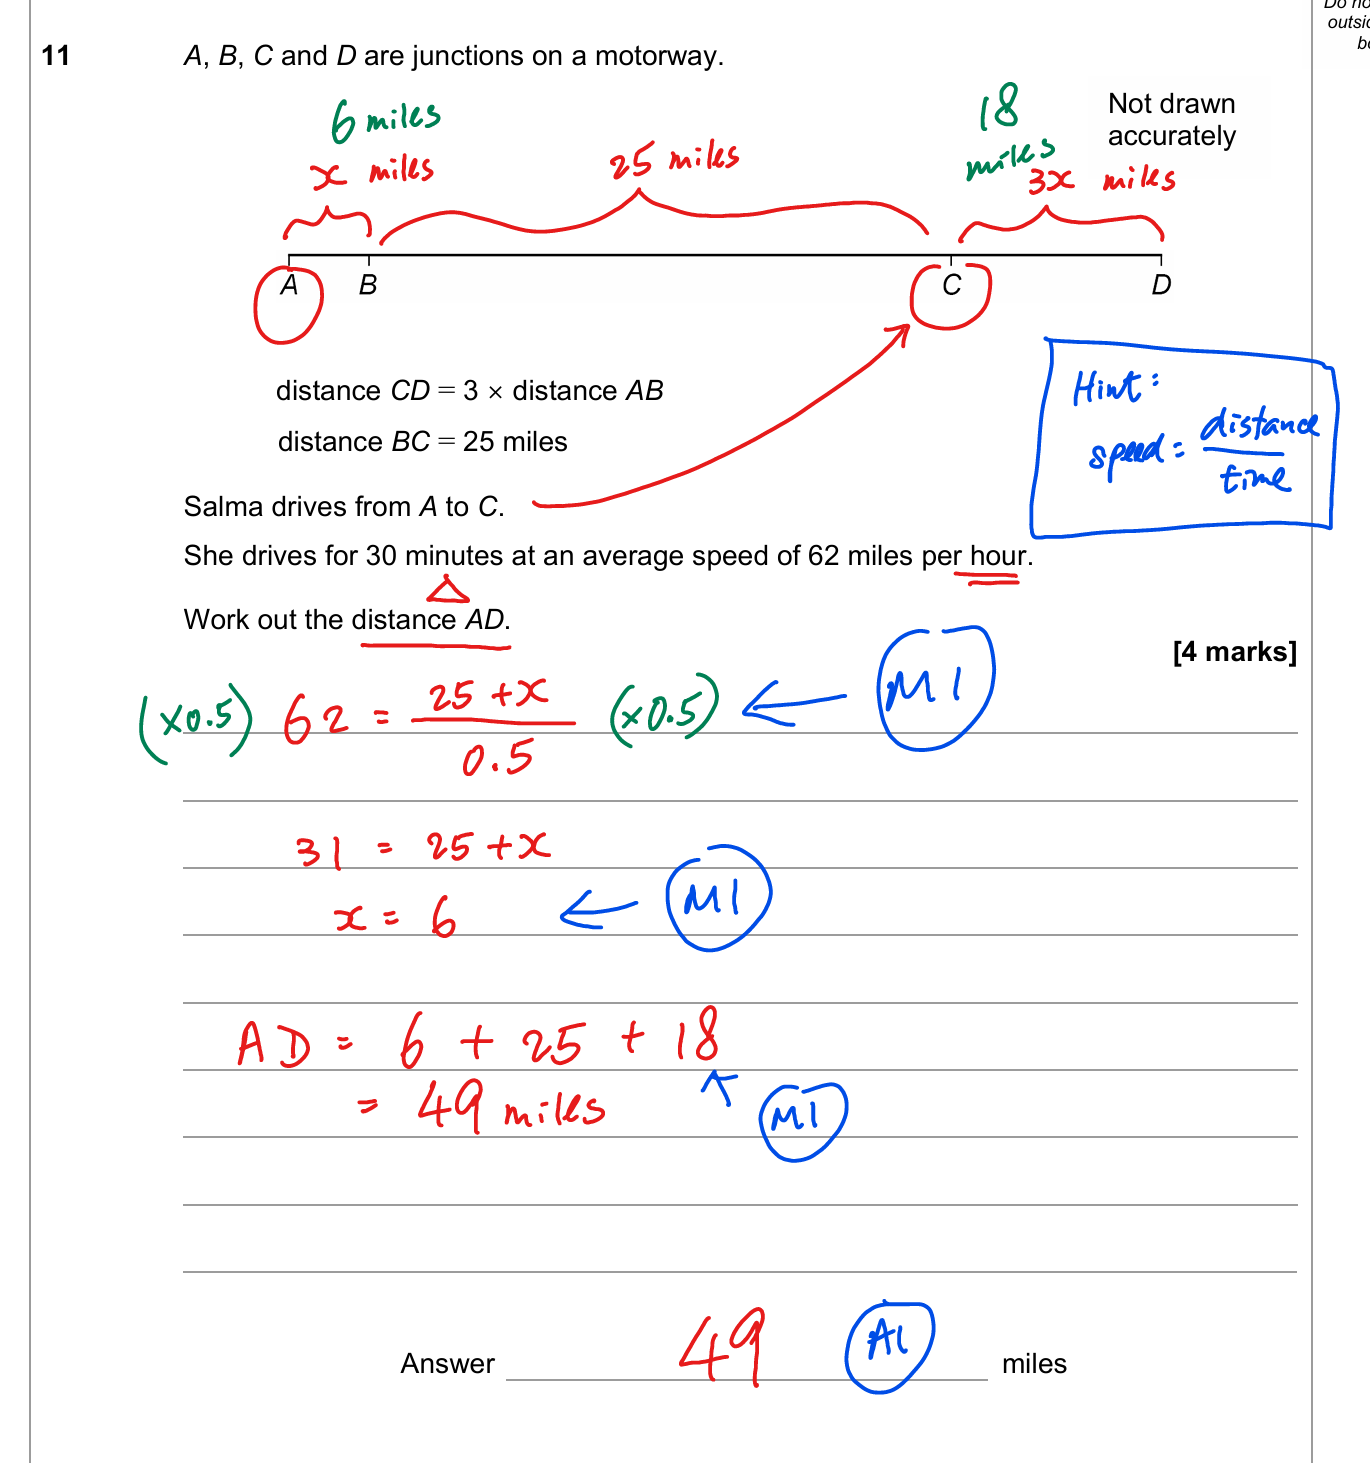 Do no
outsid
bo
11 A, B, C and D are junctions on a motorway.
Not drawn
accurately
6 miles
x miles
25 miles
18
miles
3x miles
A B C D
distance CD = 3 × distance AB
distance BC = 25 miles
Hint:
speed = distance / time
Salma drives from A to C.
She drives for 30 minutes at an average speed of 62 miles per hour.
Work out the distance AD.
[4 marks]
(×0.5) 62 = (25 + x) / 0.5 (×0.5) ← M1
31 = 25 + x
x = 6 ← M1
AD = 6 + 25 + 18
= 49 miles M1
Answer 49 A1 miles